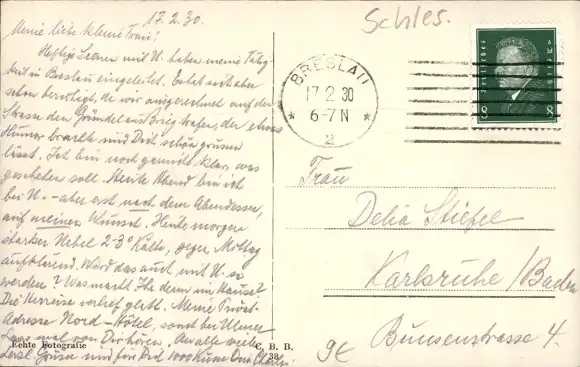 17.2.30.
Meine liebe kleine Frau!
Heftige Szenen mit U. haben meine Tätig-
keit in Breslau eingeleitet. Er hat sich aber
schon beruhigt, da wir ausgerechnet auf der
Strasse den aus Brieg trafen, der etwas
Humor brachte und Dich schön grüssen
lässt. Ich bin noch garnicht klar, was
geschehen soll. Heute Abend bin ich
bei U. - aber erst nach dem Abendessen,
auf meinen Wunsch. Heute morgen
starker Nebel 2-3° Kälte, gegen Mittag
auftauend. Wird das auch mit U. so
werden? Was macht Ihr denn im Hause?
Die Herreise verlief glatt. Meine Privat-
Adresse Nord-Hôtel, sonst bei
Lass mal von Dir hören. An alle viele
herzl. Grüsse und für Dich 1000 Küsse Dein
Echte Fotografie
C. B. B.
38
Schles.
Deutsches Reich
8 8
BRESLAU
17.2.30
6-7 N
* *
2
Frau
Delia Stiefel
Karlsruhe/Baden
Bunsenstrasse 4.
9€